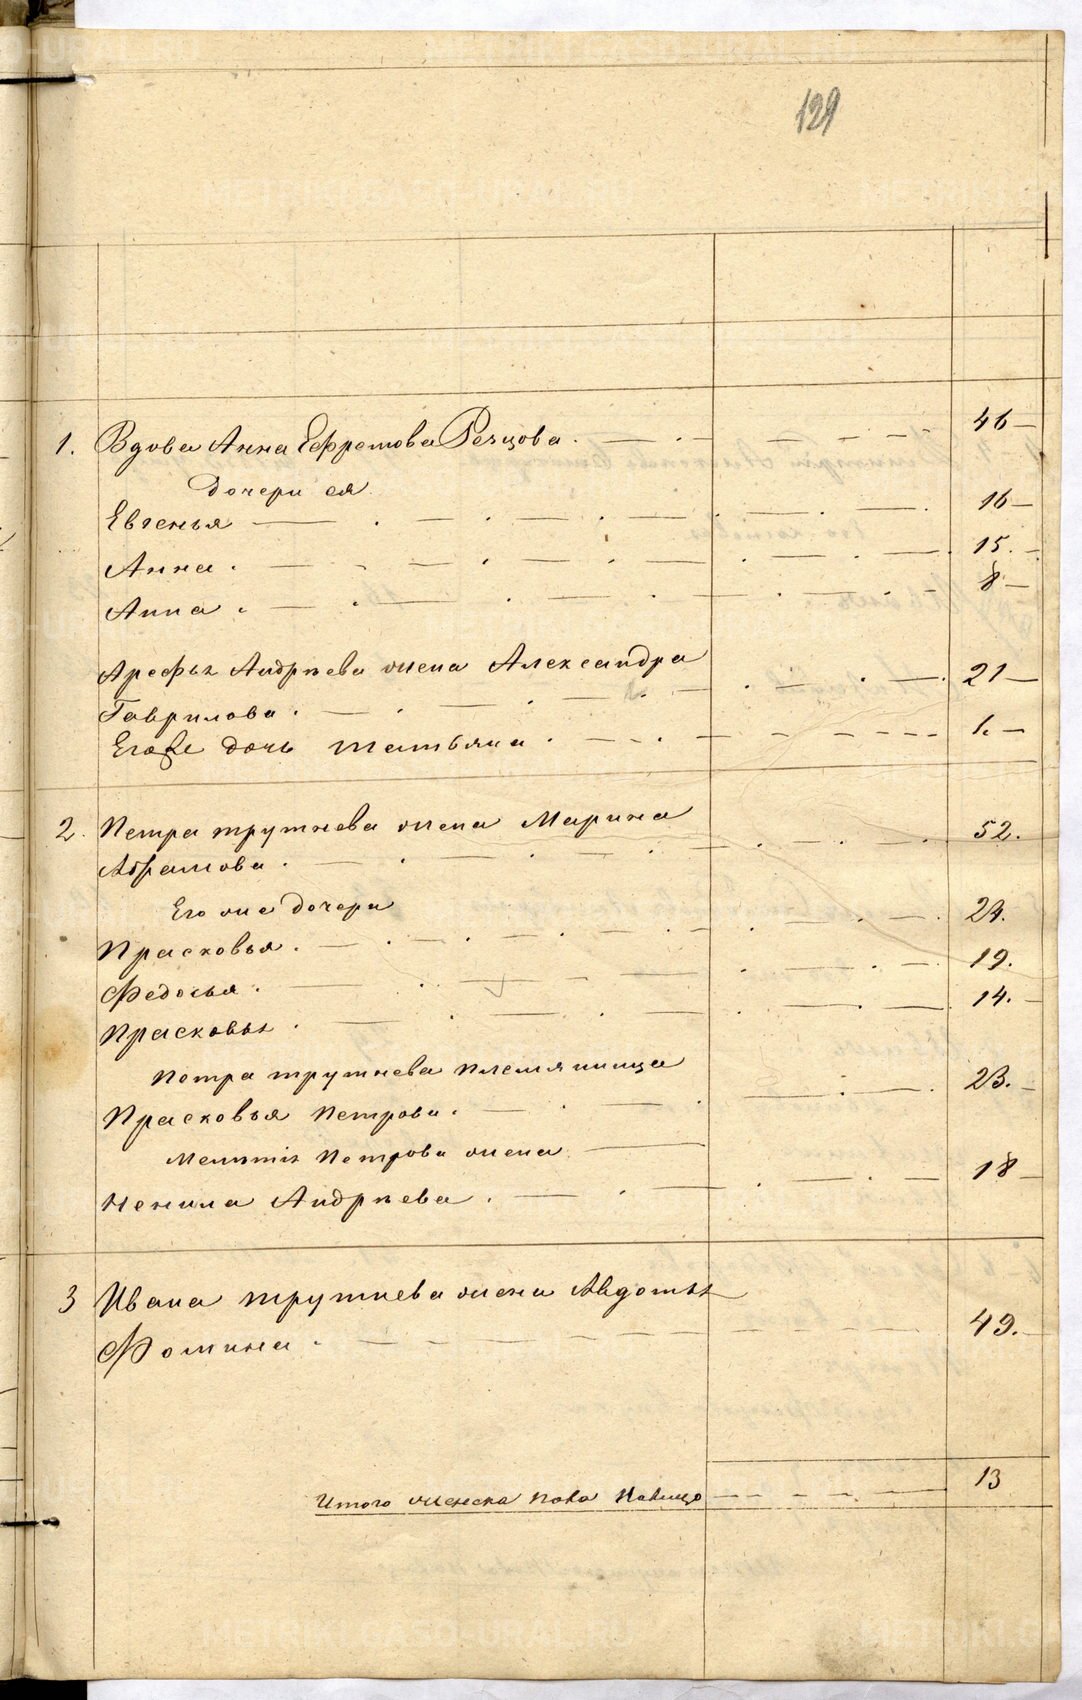 129
1. Вдова Анна Ефремова Резцова 46
Дочери ея
Евгенья 16
Анна 15.
Анна 8
Арефья Андрѣева жена Александра
Гаврилова 21
Егоже дочь Татьяна 1.
2. Петра Трутнева жена Марина
Абрамова 52.
Его же дочери
Прасковья 24.
Федосья 19.
Прасковья 14.
Петра Трутнева племянница
Прасковья Петрова 23.
Петрова жена
Ненила Андрѣева 18
3 Ивана Трутнева жена Авдотья
Фомина 49.
Итого женска пола 13